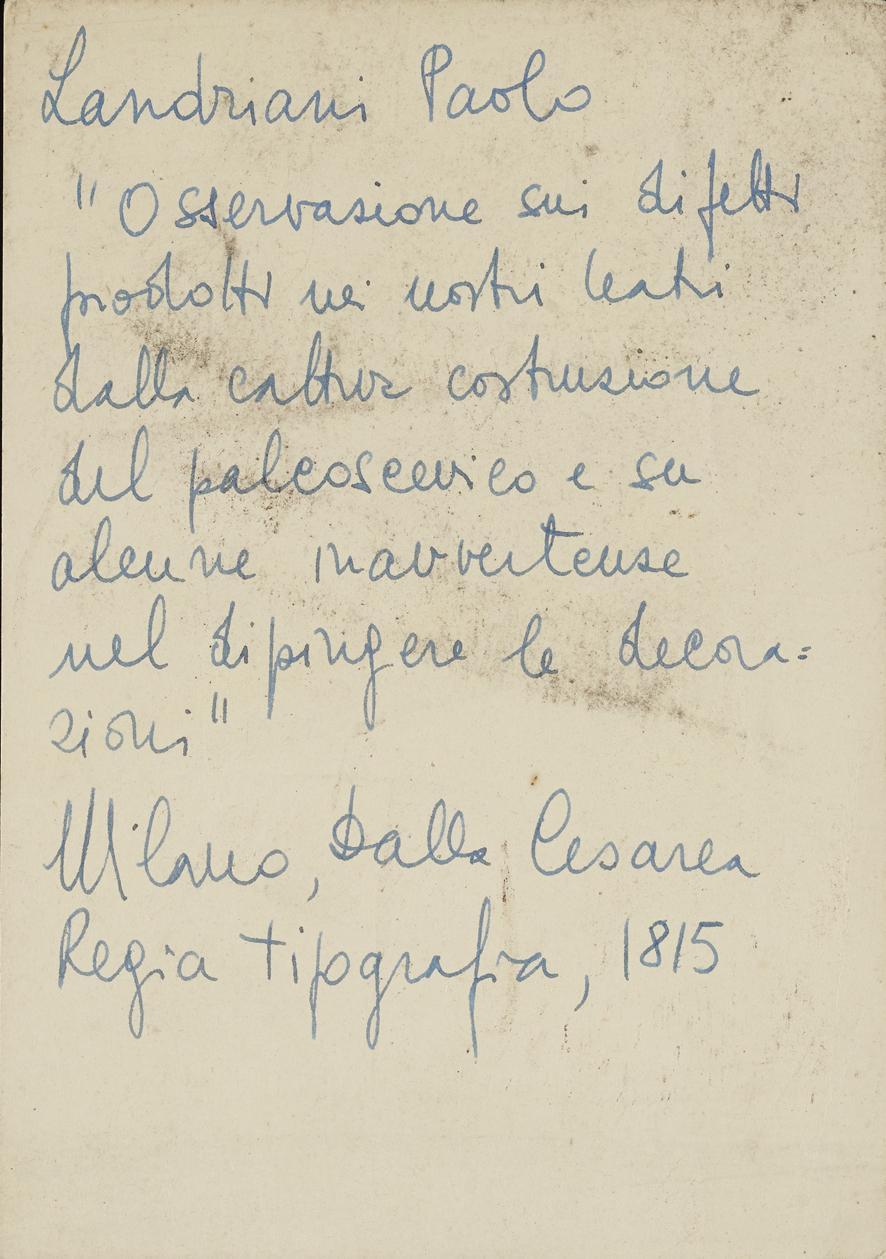 Landriani Paolo
"Osservazione sui difetti
prodotti nei nostri teatri
dalla cattiva costruzione
del palcoscenico e su
alcune inavvertenze
nel dipingere le decora=
zioni"
Milano, Dalla Cesarea
Regia tipografia, 1815